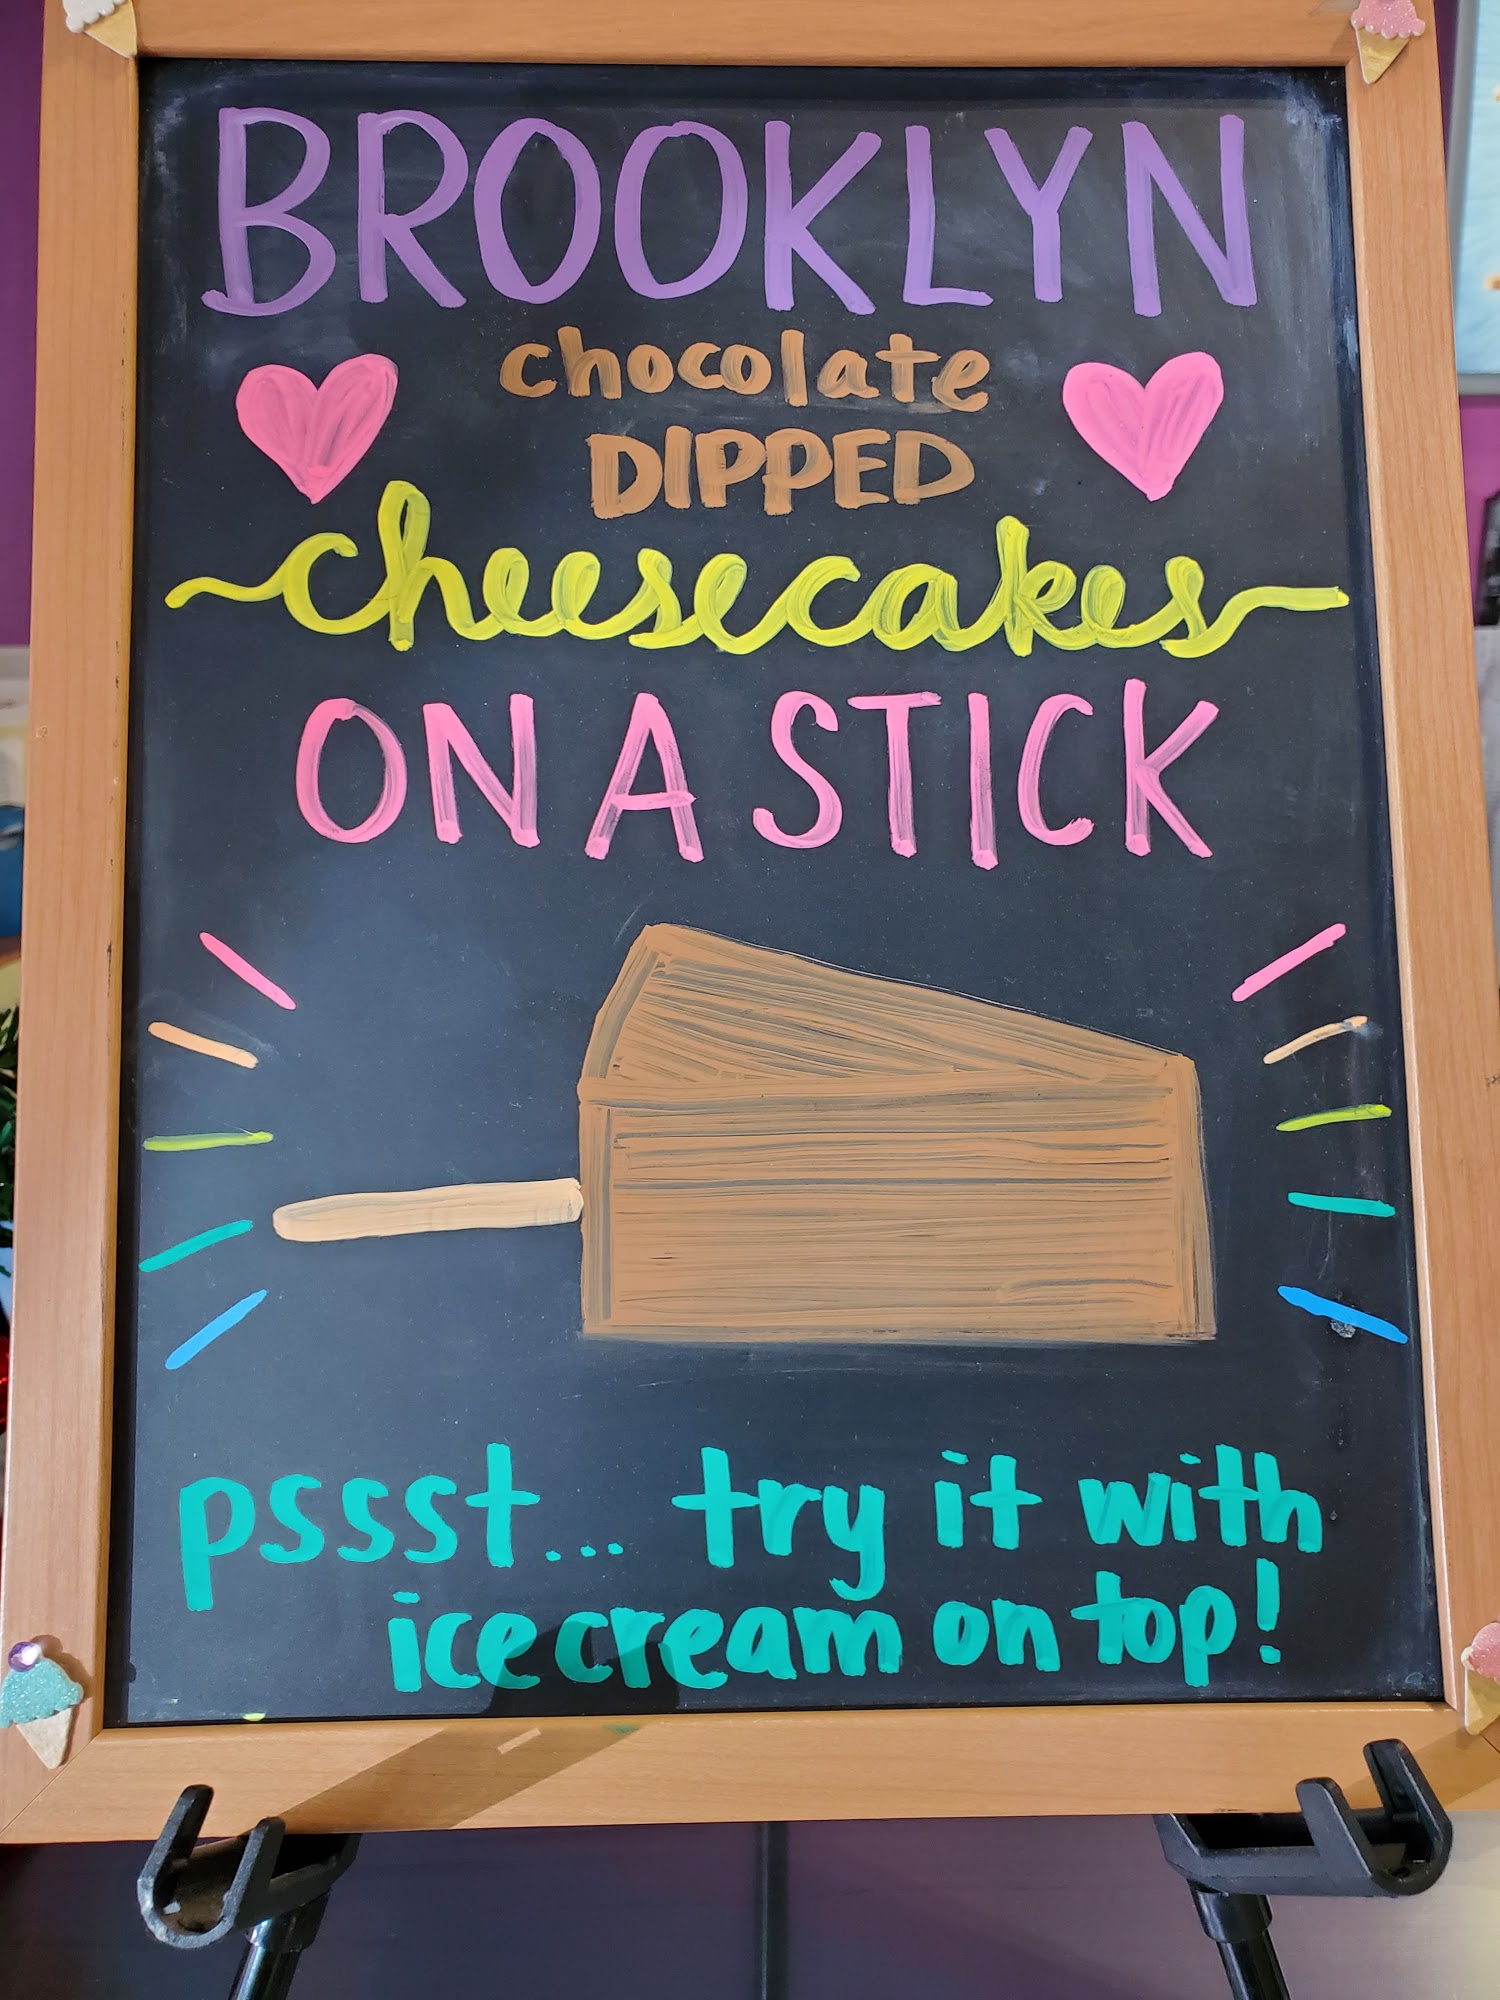 BROOKLYN
chocolate
DIPPED
cheesecakes
ON A STICK
pssst... try it with
ice cream on top!